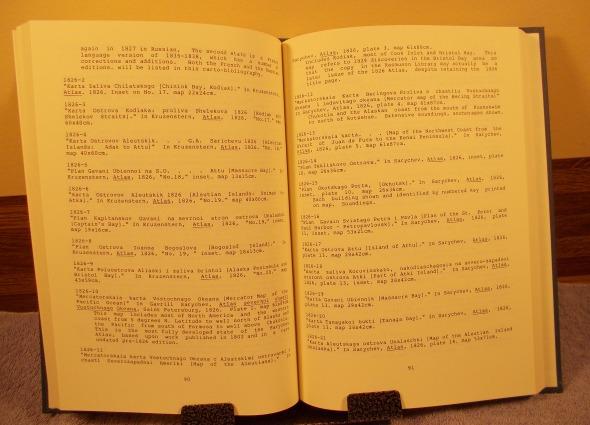 again in 1827 in Russian. The second state is a French
language version of 1835-1838, which has a number of
corrections and additions. Both the French and the Russian
editions will be listed in this carto-bibliography.
1826-2
"Karta Saliva Chiniatskago [Chiniak Bay, Kodiak]." In Kruzenstern,
Atlas, 1826, Inset on No. 17, map 22x24cm.
1826-3
"Karta Ostrova Kodiaka; proliva Shelekova 1826 [Kodiak and
Shelekov Straits]." In Kruzenstern, Atlas, 1826, "No.17," map
1826-4
"Karta Ostrovov Aleutskik. . . G.A. Saricheva 1826 [Aleutian
Islands: Adak to Attu]." In Kruzenstern, Atlas, 1826, "No.18,"
map 40x60cm.
1826-5
"Plan Gavani Ubiennoi na S.O. . . . Attu [Massacre Bay]." In
Kruzenstern, Atlas, 1826, "No.18," inset, map 13x15cm.
1826-6
"Karta Ostrovov Aleutskik 1826 [Aleutian Islands: Unimak to
Atka]." In Kruzenstern, Atlas, 1826, "No.19," map 40x60cm.
1826-7
"Plan Kapitanskov Gavani na ostrova Unalashka
[Captain's Bay]." In Kruzenstern, Atlas, 1826, "No.19," inset,
map 19x16cm.
1826-8
"Plan Ostrova Ioanna Bogoslova [Bogoslof Island]." In
Kruzenstern, Atlas, 1826, "No. 19," inset, map 16x13cm.
1826-9
"Karta Poluostrova Aliaski i saliva Bristol [Alaska Peninsula and
Bristol Bay]." In Kruzenstern, Atlas, 1826, "No.20," map
43x59cm.
1826-10
"Mercatorskaia karta Vostochnago Okeana [Mercator Map of the
Pacific Ocean]." In Gavriil Sarychev, Atlas
Vostochnago Okeana, Saint Petersburg, 1826, Plate 1, map
This map includes most of North America and the western
coast from 9 degrees N. Latitude to the north of Alaska and
the Pacific from south of Formosa to well above Chukotka.
This is the most fully developed state of the Sarychev
Atlas, based upon work published in 1802 and in an
undated pre-1826 edition.
1826-11
"Mercatorskaia karta Vostochnago Okeana s Aleutskimi ostrovami i
chasti Severozapadnei Ameriki [Map of the Aleutians]." In
90
Sarychev, Atlas, 1826, plate 3, map 61x86cm.
Includes Kodiak, most of Cook Inlet and Bristol Bay. This
map refers to 1829 discoveries in the Bristol Bay area so
that the copy in the Rasmuson Library may actually be a
later issue of the 1826 Atlas, despite retaining the 1826
title page.
1826-12
"Mercatorskaia Karta Beringova Proliva s chastiiu Vostochnago
okeana i ledovitago okeana [Mercator map of the Bering Straits]."
In Sarychev, Atlas, 1826, plate 4, map 61x87cm.
Chukotia and the Alaskan coast from the south of Kuskokwim
to north of Kotzebue. Extensive soundings, anchorages shown.
1826-13
"Mercatorskaia karta. . . [Map of the Northwest Coast from the
Strait of Juan de Fuca to the Kenai Peninsula]." In Sarychev,
Atlas, 1826, plate 5, map 61x87cm.
1826-14
"Plan Ostrova." In Sarychev, Atlas, 1826, inset, plate
10, map 26x36cm.
1826-15
"Plan Okotskago Porta, [Okhotsk]." In Sarychev, Atlas, 1826,
inset, plate 10, map 26x36cm.
Each building shown and identified by numbered key printed
on map. Soundings.
1826-16
"Plan Gavani Sviatago Petra i Pavla [Plan of the St. Peter and
Paul Harbor - Petropavlovsk]." In Sarychev, Atlas, 1826, plate
11, inset, map 53x21cm.
1826-17
"Karta Ostrova Attu [Island of Attu]." In Sarychev, Atlas, 1826,
plate 11, map 29x42cm.
1826-18
"Karta saliva Korovinskago, nakodiashchagosia na severo-zapadnoi
storoni ostrova Atki [Part of Atki Island]." In Sarychev, Atlas,
1826, plate 13, inset, map 28x43cm.
1826-19
"Karta Gavani Ubiennoi [Massacre Bay]." In Sarychev, Atlas, 1826,
plate 11, map 29x42cm.
1826-20
"Karta Tanagakoi bukti [Tanaga Bay]." In Sarychev, Atlas, 1826,
plate 11, map 29x42cm.
1826-21
"Karta Aleutskago ostrova Unalashki [Map of the Aleutian Island
Unalaska]." In Sarychev, Atlas, 1826, plate 14, map 33x71cm.
91